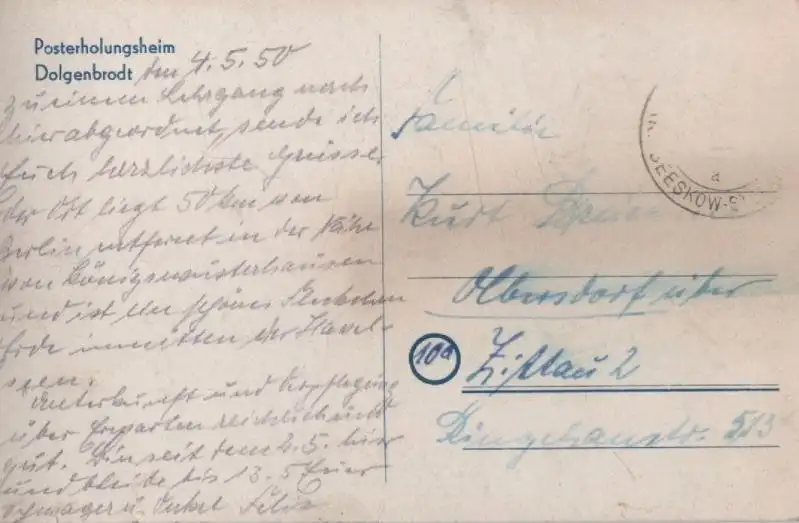 Posterholungsheim
Dolgenbrodt den 4.5.50
Zu einem Lehrgang nach
hier abgeordnet, sende ich
Euch herzlichste Grüsse.
Der Ort liegt 50 km von
Berlin entfernt in der Nähe
von Königswusterhausen
und ist ein schönes Fleckchen
Erde inmitten der Havel-
seen.
Unterkunft und Verpflegung
über Erwarten reichlich und
gut. Bin seit dem 2.5. hier
und bleibe bis 13.5 Euer
Schwager u. Onkel Felix
BEESKOW-
a
Familie
Kurt
Olbersdorf über
10a
Zittau 2
513